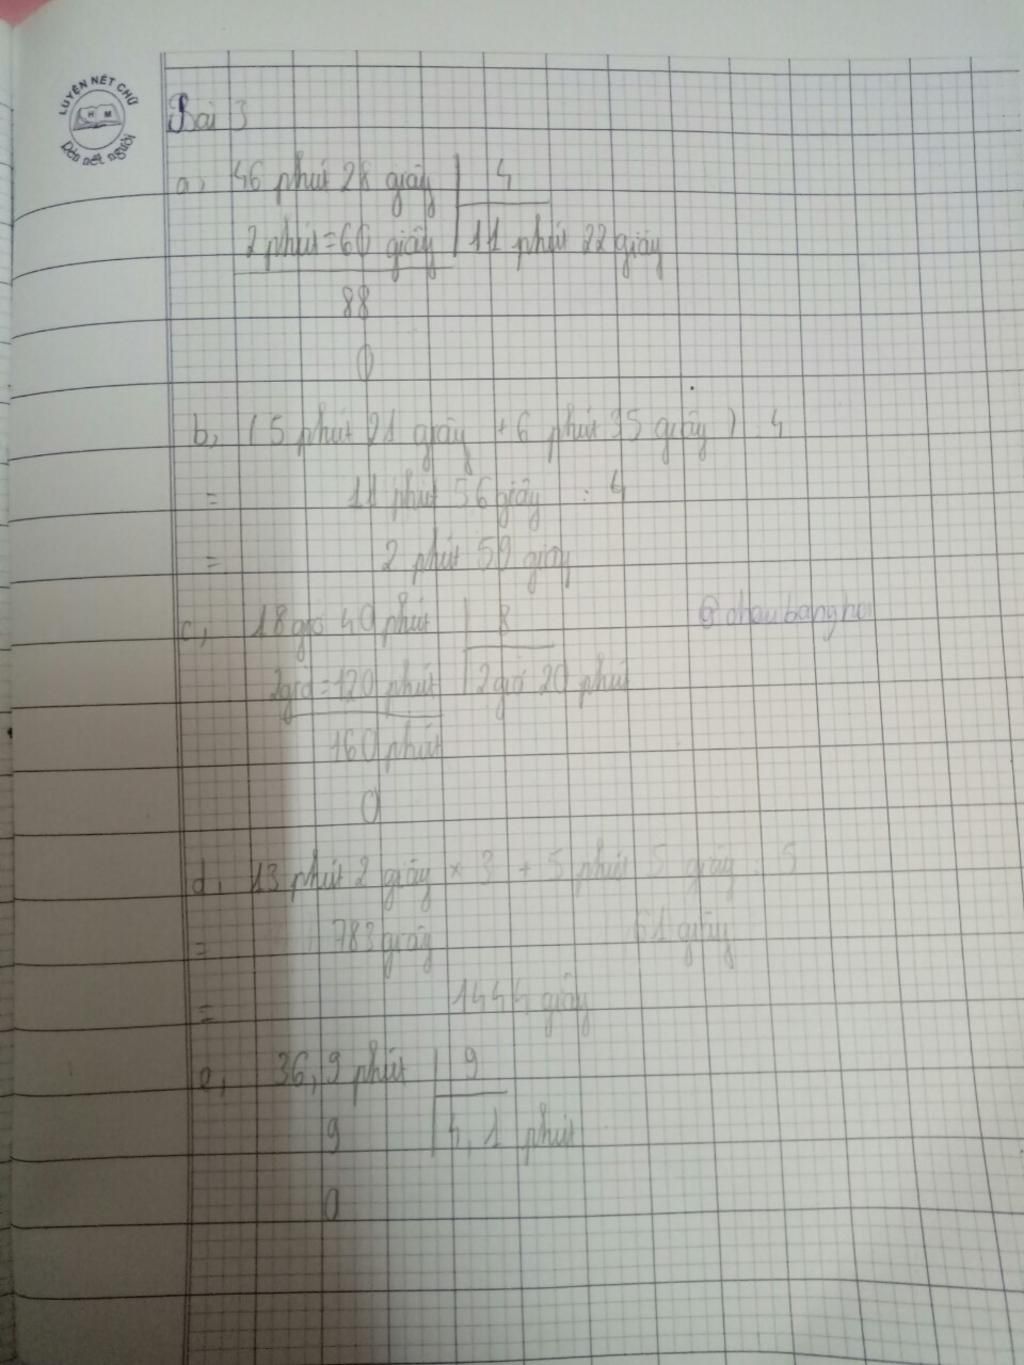 LUYỆN NÉT CHỮ
H M
Rèn nết người
Bài 3
a, 46 phút 28 giây 4
2 phút = 60 giây 11 phút 22 giây
88
0
b, ( 5 phút 21 giây + 6 phút 35 giây ) : 4
= 11 phút 56 giây : 4
= 2 phút 59 giây
c, 18 giờ 40 phút 8
2 giờ = 120 phút 2 giờ 20 phút
160 phút
0
d, 13 phút 2 giây × 3 + 5 phút 5 giây : 5
= 783 giây 61 giây
= 1444 giây
e, 36,9 phút 9
9 4,1 phút
0